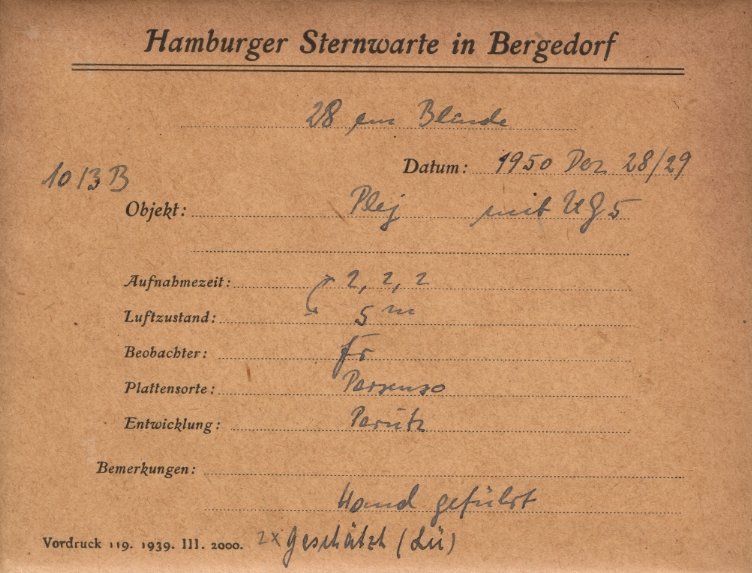 Hamburger Sternwarte in Bergedorf
28 cm Blende
Datum: 1950 Dez 28/29
1013 B
Objekt: Plej mit UG5
Aufnahmezeit: 2, 2, 2
Luftzustand: 5 m
Beobachter: Fr
Plattensorte: Persenso
Entwicklung: Perutz
Bemerkungen:
Hand geführt
Vordruck 119. 1939. III. 2000. 2x geschätzt (Lü)